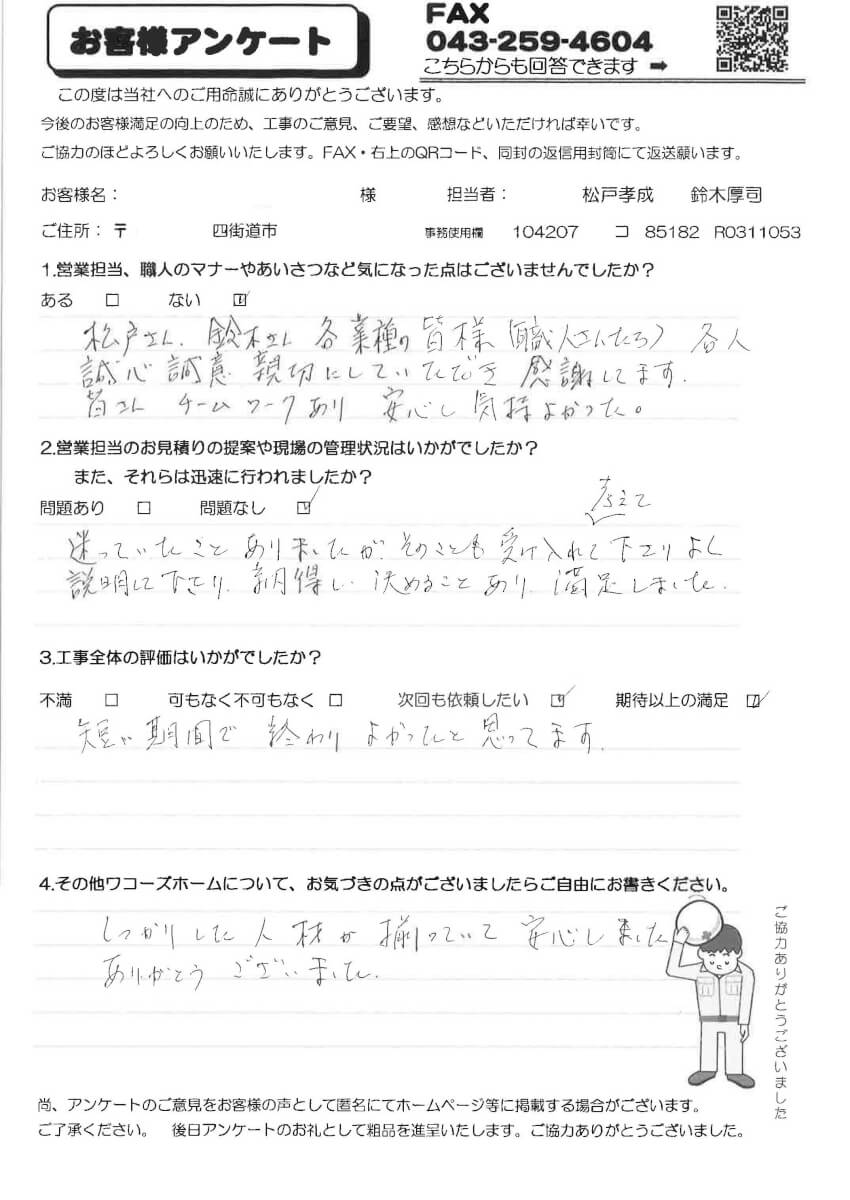 お客様アンケート
FAX
043-259-4604
こちらからも回答できます ➡
この度は当社へのご用命誠にありがとうございます。
今後のお客様満足の向上のため、工事のご意見、ご要望、感想などいただければ幸いです。
ご協力のほどよろしくお願いいたします。FAX・右上のQRコード、同封の返信用封筒にて返送願います。
お客様名： 様 担当者： 松戸孝成 鈴木厚司
ご住所：〒 四街道市 事務使用欄 104207 コ 85182 R0311053
1.営業担当、職人のマナーやあいさつなど気になった点はございませんでしたか？
ある □ ない ☑
松戸さん、鈴木さん 各業種の皆様（職人さんたち）各人
誠心誠意 親切にしていただき 感謝してます。
皆さん チームワークあり 安心し気持よかった。
2.営業担当のお見積りの提案や現場の管理状況はいかがでしたか？
また、それらは迅速に行われましたか？
問題あり □ 問題なし ☑
考えて
迷っていたこと ありましたが、そのことも 受け入れて下さり よく
説明して下さり、納得し、決めることあり、満足しました。
3.工事全体の評価はいかがでしたか？
不満 □ 可もなく不可もなく □ 次回も依頼したい ☑ 期待以上の満足 ☑
短い期間で 終わり よかったと 思ってます。
4.その他ワコーズホームについて、お気づきの点がございましたらご自由にお書きください。
しっかりした人材が 揃っていて 安心しました
ありがとう ございました。
ご協力ありがとうございました
尚、アンケートのご意見をお客様の声として匿名にてホームページ等に掲載する場合がございます。
ご了承ください。 後日アンケートのお礼として粗品を進呈いたします。ご協力ありがとうございました。